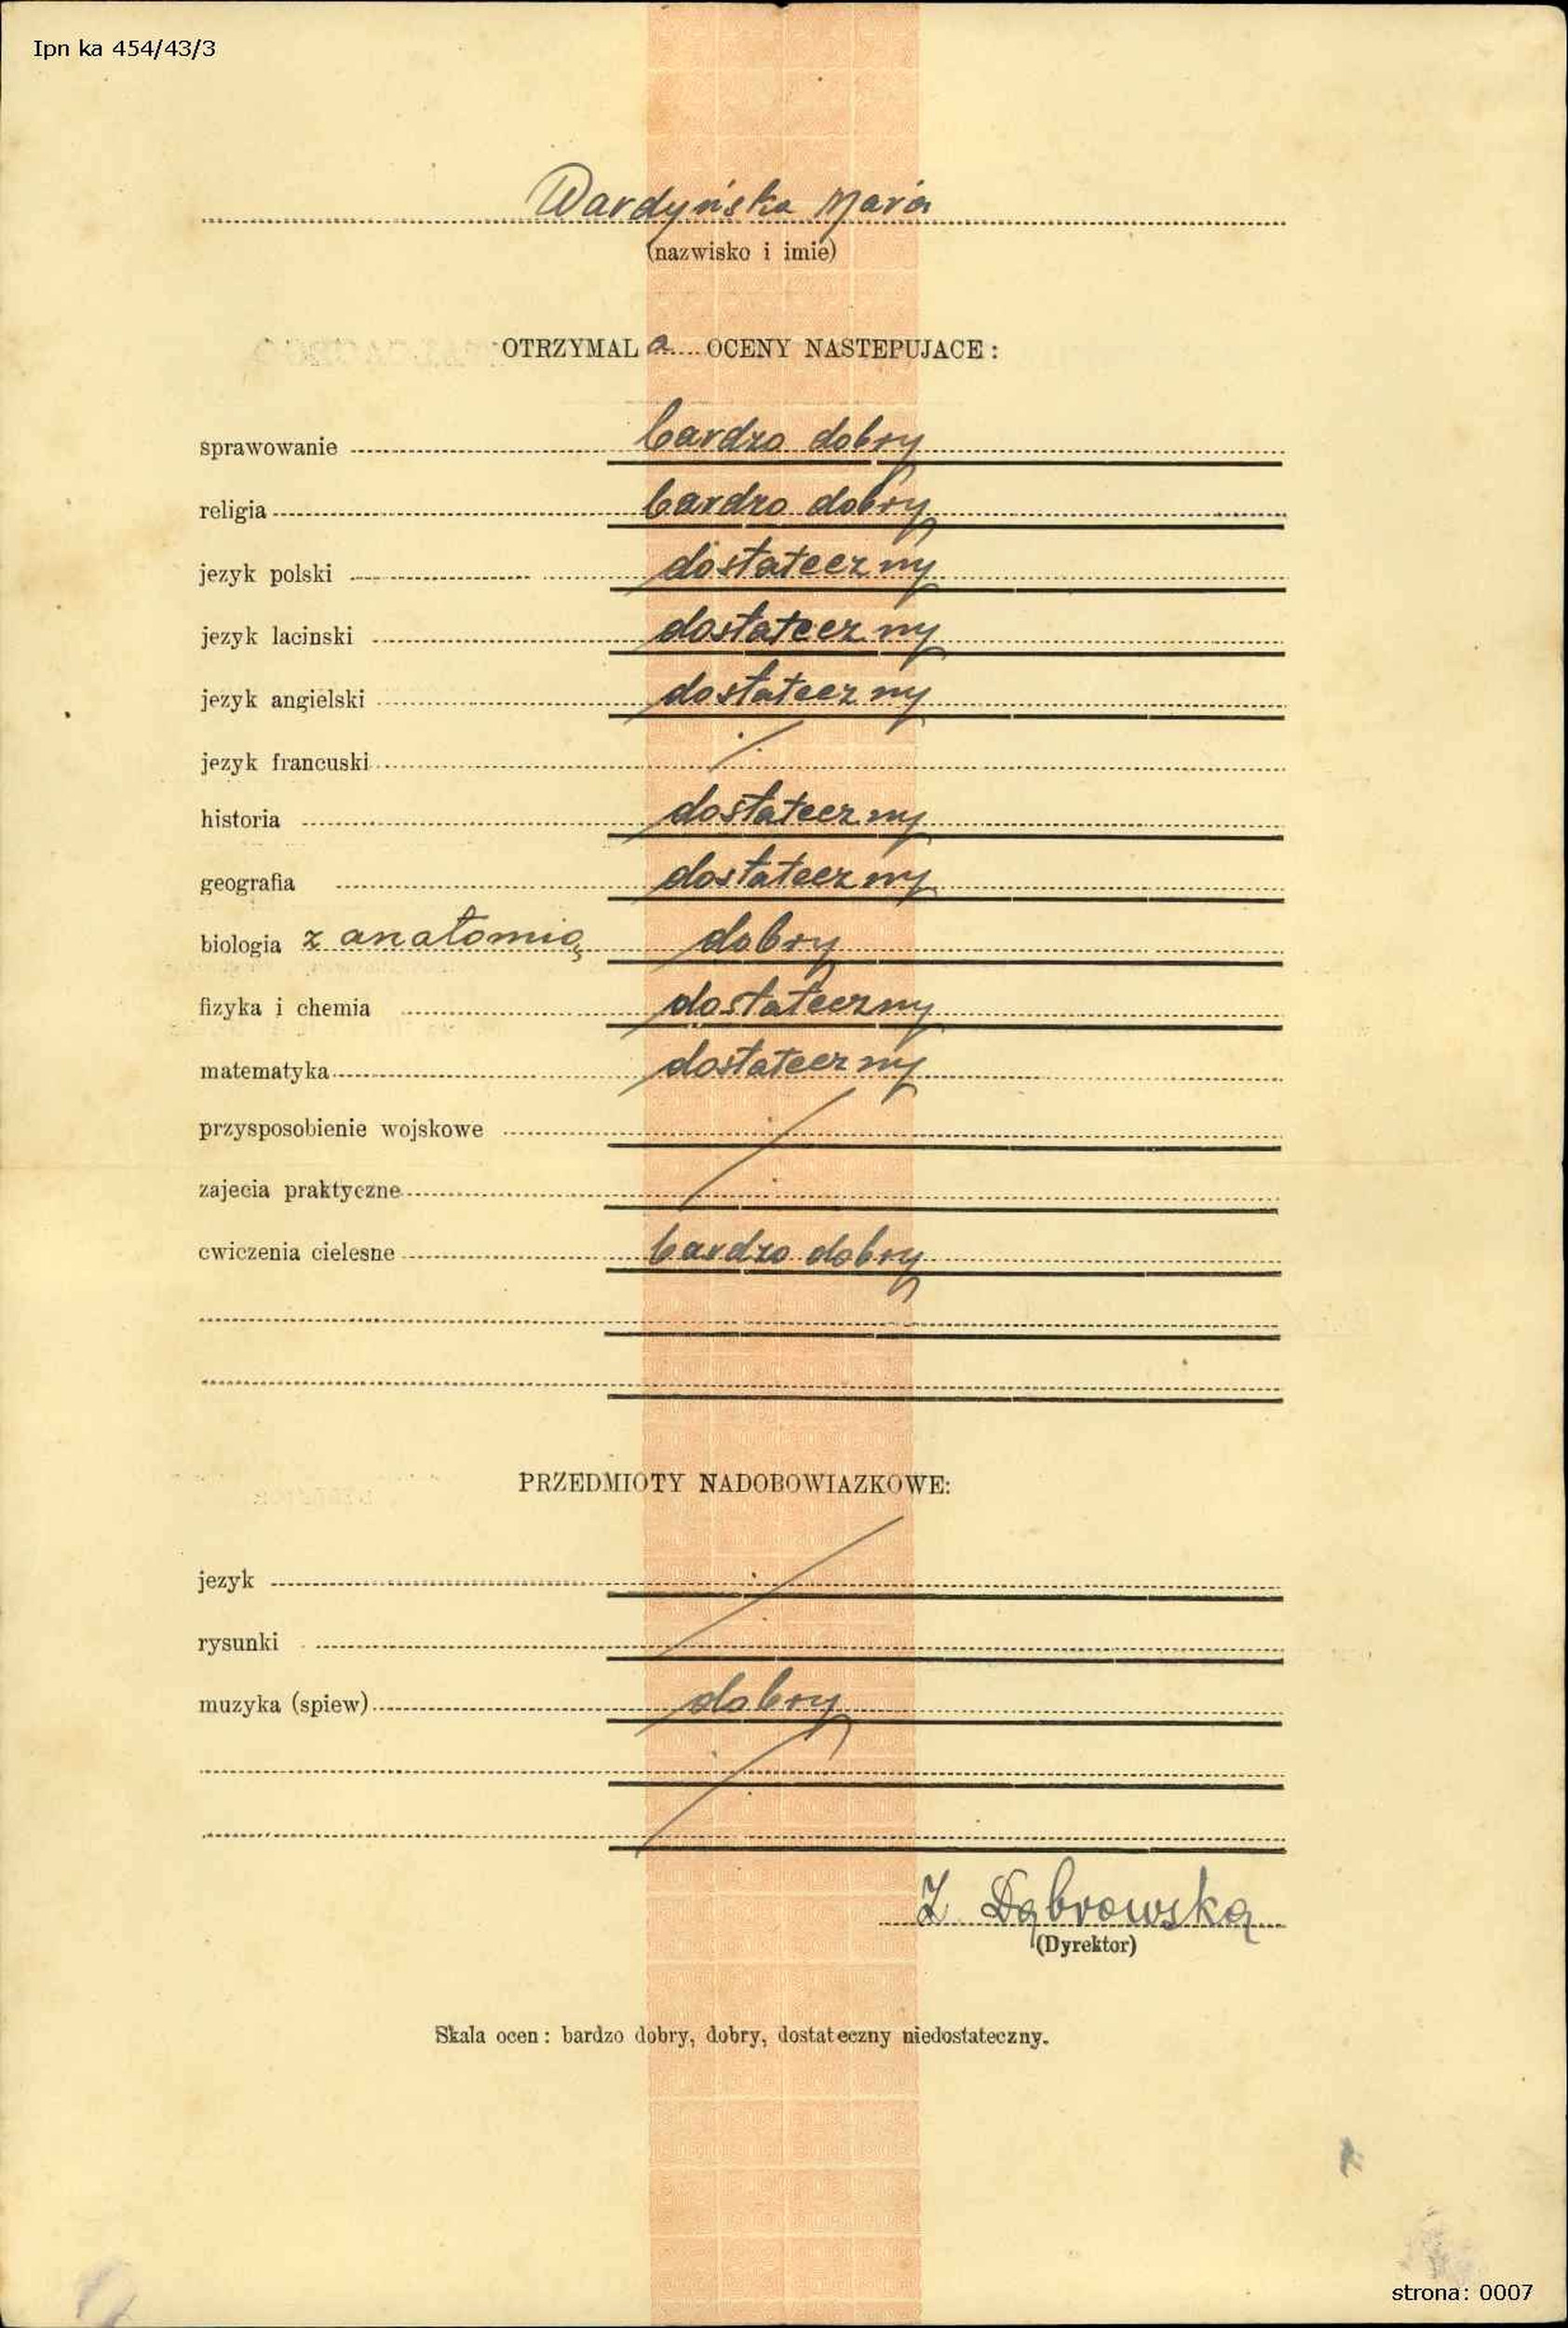 Ipn ka 454/43/3
Wardyńska Maria
(nazwisko i imie)
OTRZYMAL a.... OCENY NASTEPUJACE :
sprawowanie bardzo dobry
religia bardzo dobry
jezyk polski dostateczny
jezyk lacinski dostateczny
jezyk angielski dostateczny
jezyk francuski
historia dostateczny
geografia dostateczny
biologia z anatomią dobry
fizyka i chemia dostateczny
matematyka dostateczny
przysposobienie wojskowe
zajecia praktyczne
cwiczenia cielesne bardzo dobry
PRZEDMIOTY NADOBOWIAZKOWE:
jezyk
rysunki
muzyka (spiew) dobry
Z Dąbrowska
(Dyrektor)
Skala ocen : bardzo dobry, dobry, dostateczny niedostateczny.
strona: 0007